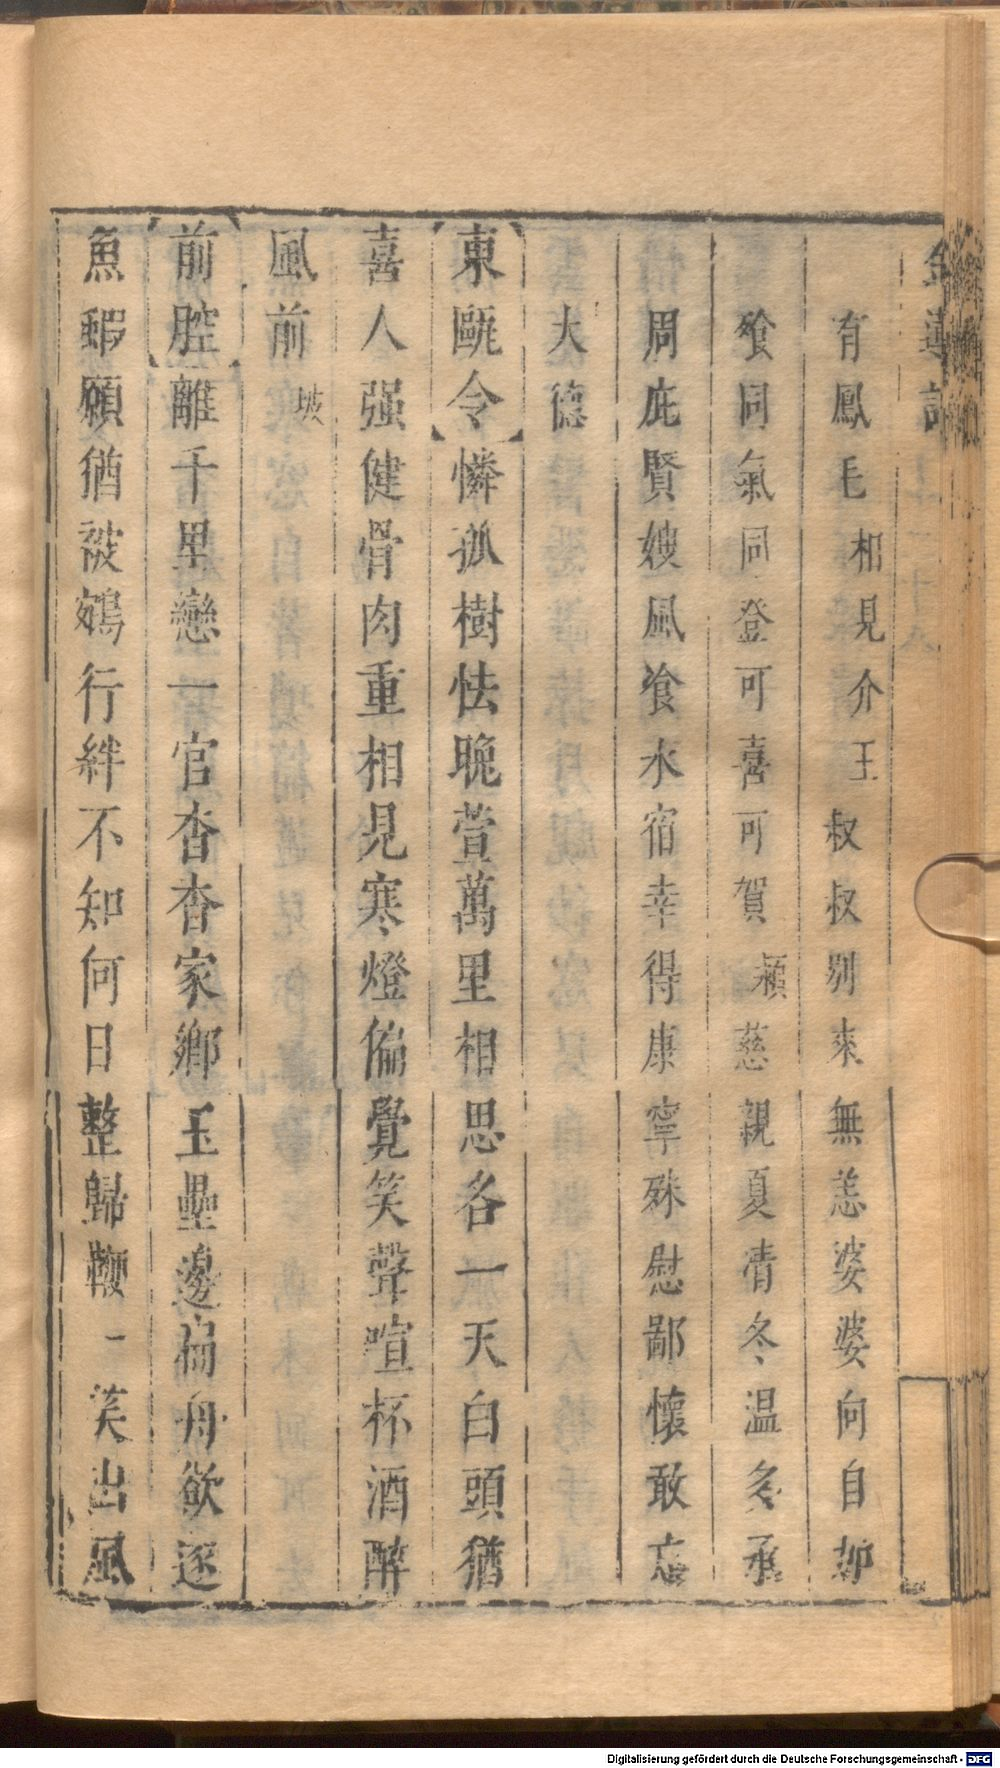 金蓮記
有鳳毛相見介王叔叔別來無恙婆婆向自如
飱同氣同登可喜可賀潁慈親夏凊冬温多承
周庇賢嫂風飡水宿幸得康寧殊慰鄙懷敢忘
大德
東甌令憐孤樹怯晚萱萬里相思各一天白頭猶
喜人强健骨肉重相見寒燈偏覺笑聲喧杯酒醉
風前坡
前腔離千里戀一官杳杳家鄉玉壘邊扁舟欲逐
魚蝦願猶被鵷行絆不知何日整歸鞭一笑出風
Digitalisierung gefördert durch die Deutsche Forschungsgemeinschaft - DFG